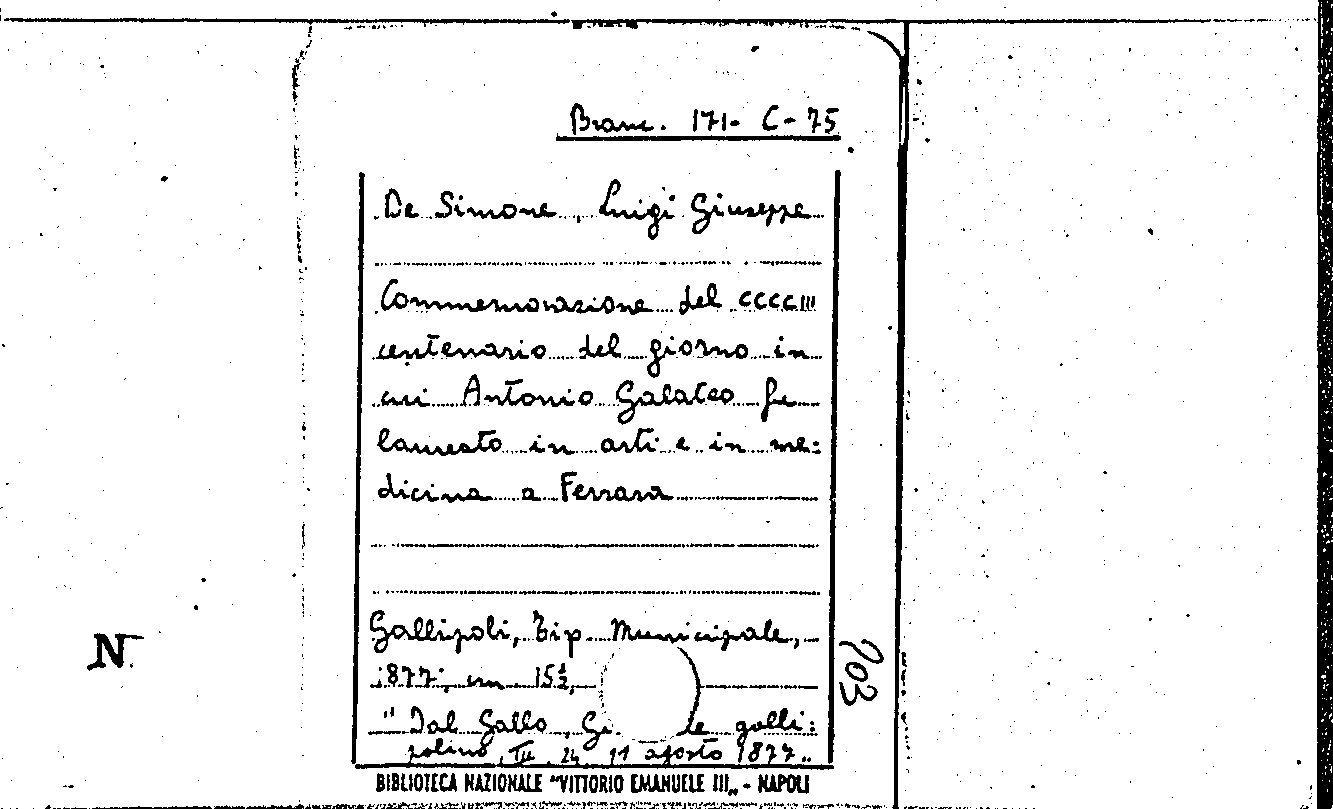 Branc. 171- C- 75
De Simone, Luigi Giuseppe
Commemorazione del CCCCIII
centenario del giorno in
cui Antonio Galateo fu
laureato in arti e in me:
dicina a Ferrara
Gallipoli, Tip. Municipale,
1877, cm 15½,
"Dal Gallo, Gi le galli:
polino, III, 24, 11 agosto 1877„
BIBLIOTECA NAZIONALE "VITTORIO EMANUELE III„ - NAPOLI
N
203